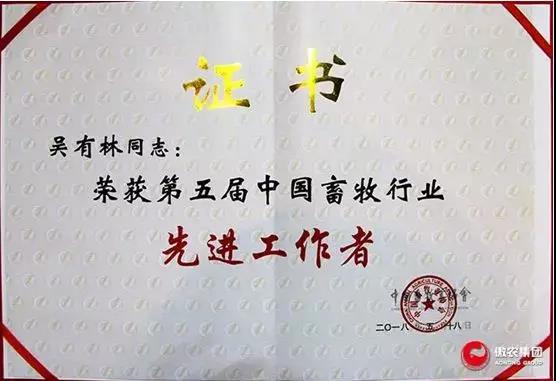 证书
吴有林同志：
荣获第五届中国畜牧行业
先进工作者
二〇一八 五 十八日
傲农集团
AONONG GROUP